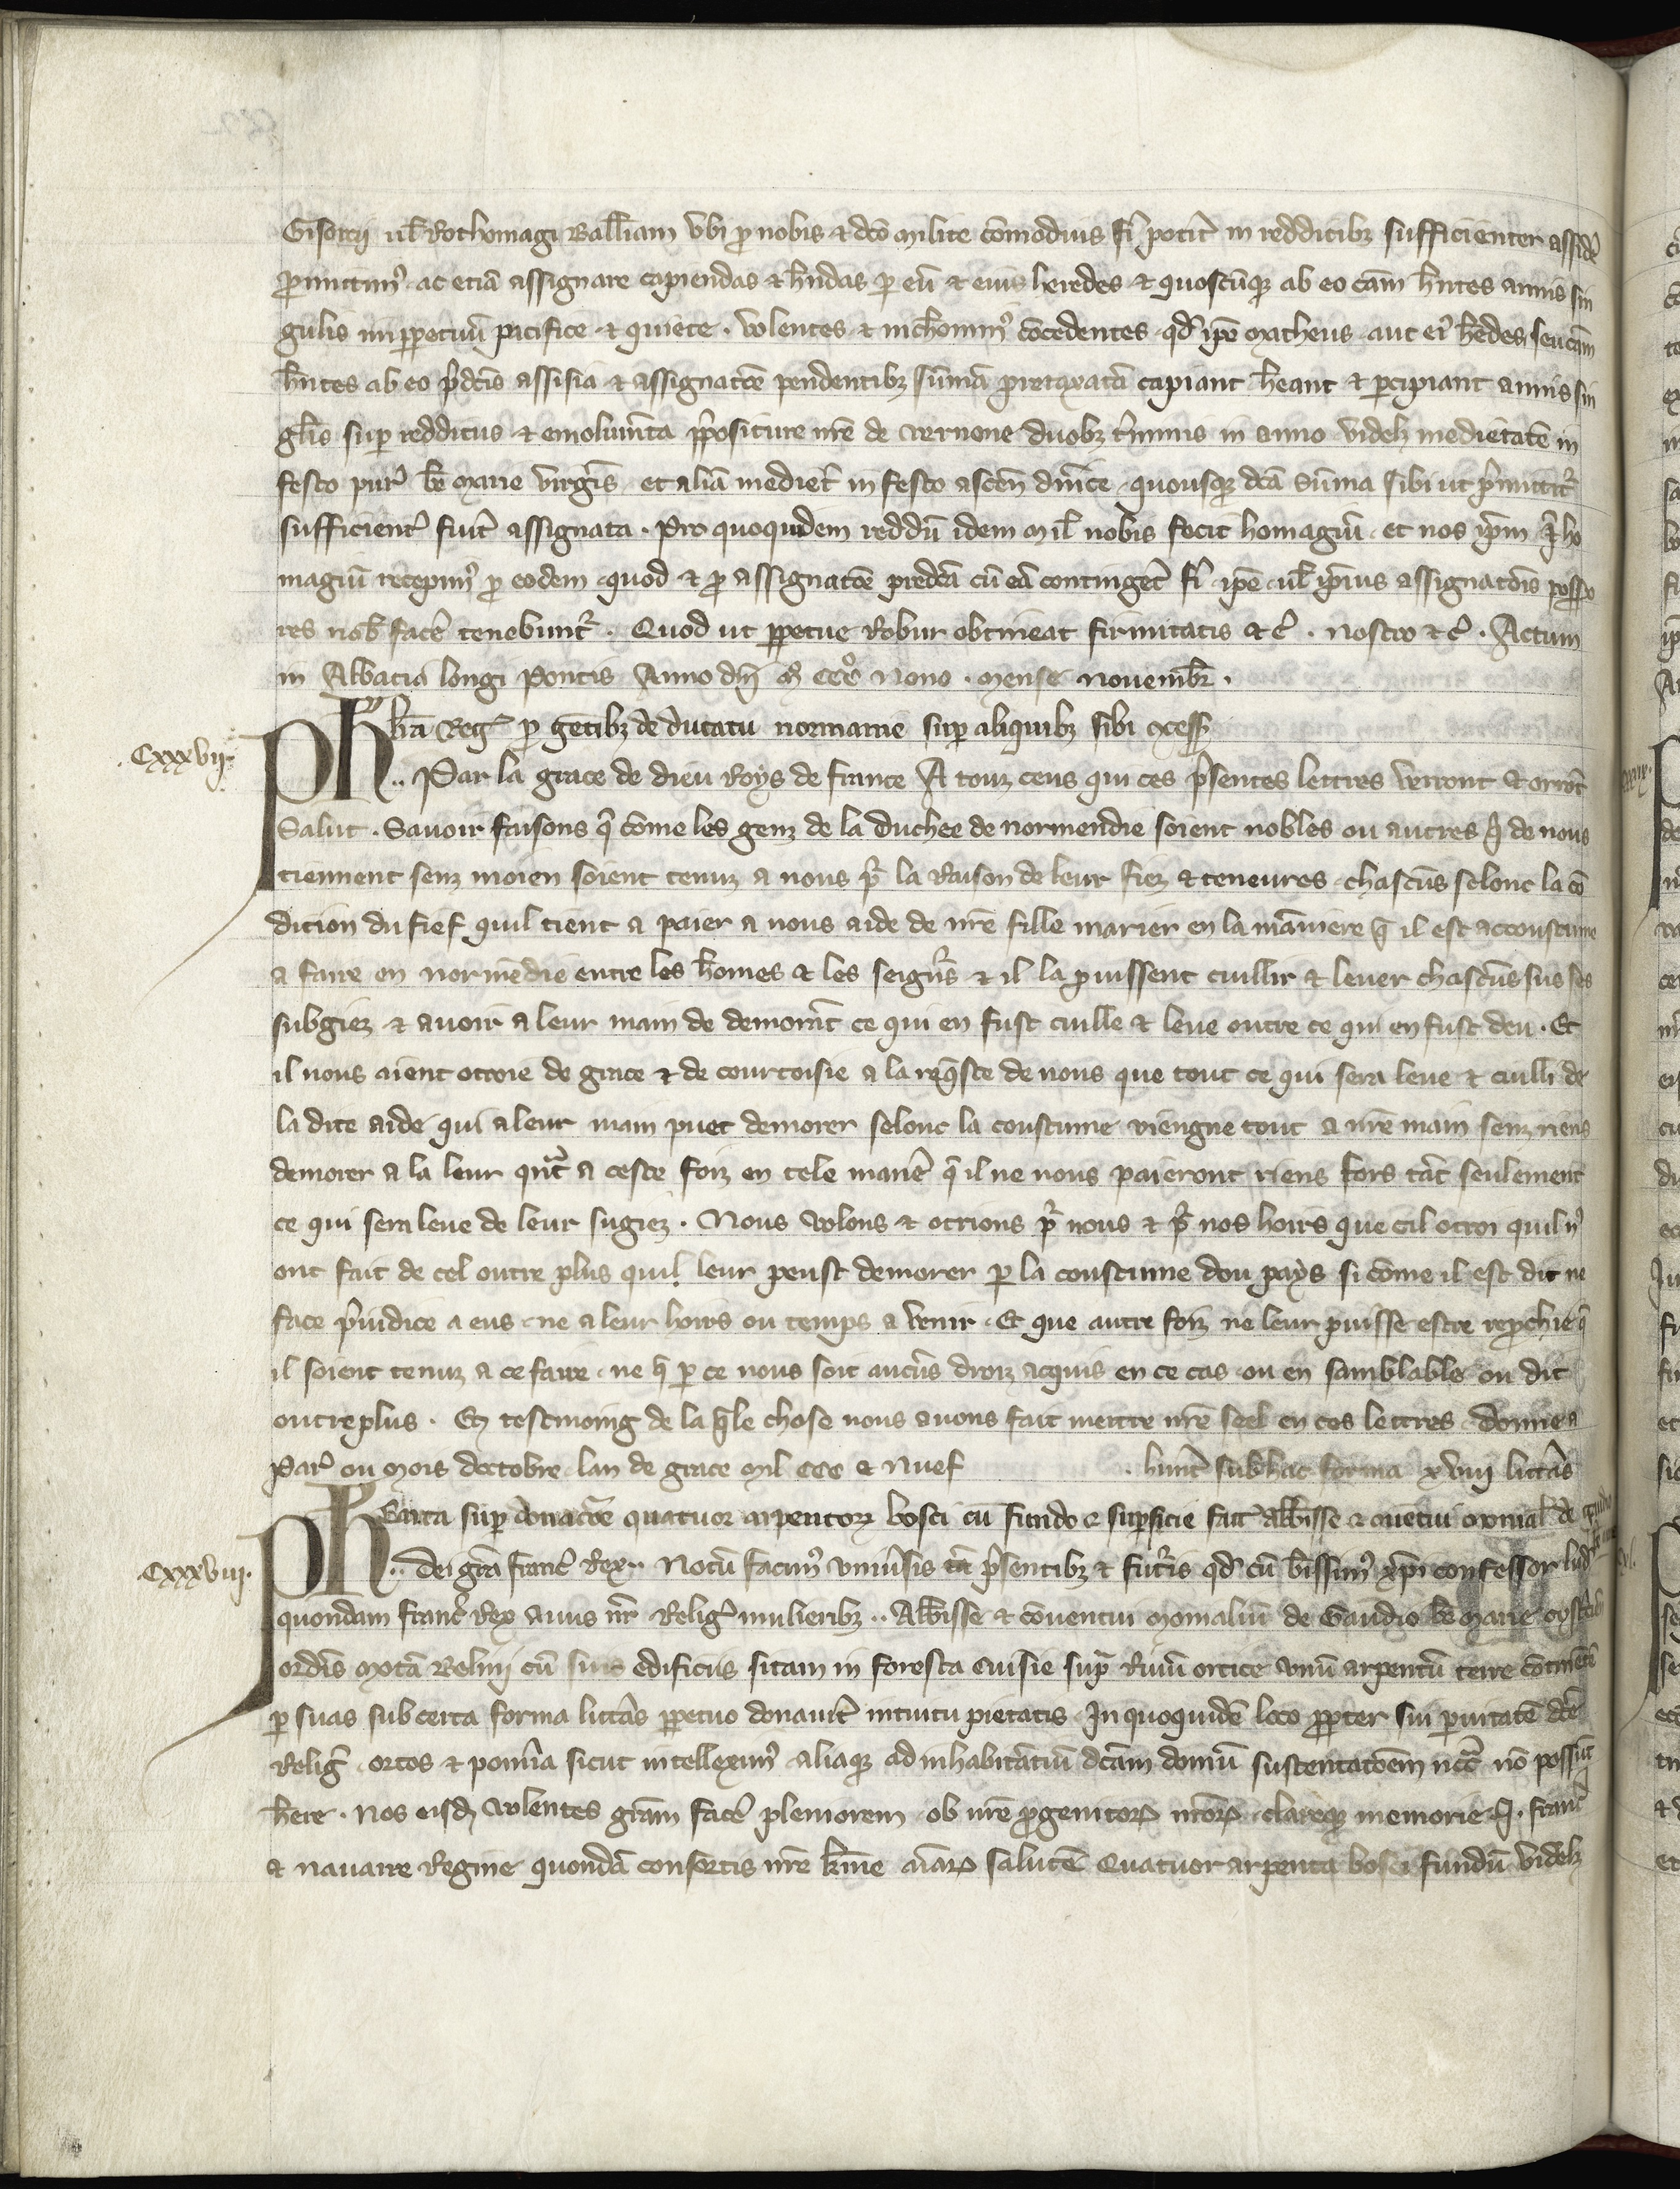 Gisorcij ul̄ Rothomagi Ballīam vbi ꝓ nobis ⁊ dc̄o milite cōmodius fi͛i potit͛ in redditibꝫ sufficienter assid͛e
ꝓmittim᷒ ac etiā assignare capiendas ⁊ hn̄das ꝑ eū ⁊ eius heredes ⁊ quoscūqꝫ ab eo cām hn̄tes annis sin
gulis inꝑpetuū pacifice ⁊ quiete . volentes ⁊ nichomin᷒ cōcedentes qd̓ ip̄e Matheus aut ei᷒ h̄edes seu cām
hn̄tes ab eo p̓dc̄is assisia ⁊ assignatōe pendentibꝫ sūmā pretaxatā capiant h̄eant ⁊ ꝑcipiant annis sin
gl̄is suꝑ redditus ⁊ emolum̄ta p̄positure nr̄e de Vernone duobꝫ t͛minis in anno videlꝫ medietatē in
festo pur͛ be͞ Marie virgīs et aliā mediet͛ in festo ascen̄ dn̄ice quousqꝫ dc̄a Sūma sibi ut p̓mittit͛
sufficient͛ fu͛it assignata . Pro quoquidem reddū idem mil̄ nobis fecit homagiū et nos ip̄m ī ho
magiū recepim᷒ ꝓ eodem quod ⁊ ꝓ assignatōe predc̄a cū eā continget͛ fi͛i ip̄e ul̄ ip̄ius assignatōis possesso
res nob̄ fac͛e tenebunt͛ . Quod ut ꝑpetue Robur obtineat firmitatis ⁊c̄ . nostro ⁊c̄ . Actum
in Abbacia longi Pontis Anno dn̄i mº cccº nono . mense nouembr̄ .
.Cxxxvij. kr̄a Reg͛ ꝓ gētibꝫ de ducatu normanie suꝑ aliquibꝫ sibi cōcess̄
Ph .. Par la grace de dieu Roys de france A touz ceus qui ces p̓sentes lettres verront ⁊ orrōt
Salut . Sauoir faisons q̄ cōme les genz de la duchee de normendie soient nobles ou autres q̇ de nous
tiennent senz moien soient tenuz a nous pr̄ la raison de leur fiez ⁊ teneures chascūs selonc la cō
dition du fief quil tient a paier a nous aide de nr̄e fille marier en la māniere q̄ il est accoustume
a faire en normēdie entre les h̄omes ⁊ les seign͛s ⁊ il la puissent cuillir ⁊ leuer chascūs sus ses
subgiez ⁊ auoir a leur main de demorāt ce qui en fust cuilli ⁊ leue outre ce qui en fust deu . Et
il nous aient ottroie de grace ⁊ de courtoisie a la req̄ste de nous que tout ce qui sera leue ⁊ cuilli de
la dite aide qui a leur main puet demorer selonc la coustume viengne tout a nr̄e main senz riens
demorer a la leur qn̄t a ceste foiz en tele manie͛ q̄ il ne nous paieront riens fors tāt seulement
ce qui sera leue de leur sugiez . Nous volons ⁊ otrions pr̄ nous ⁊ pr̄ nos hoirs que cil ottroi quil n᷒
ont fait de cel outre plus quil leur peust demorer ꝑ la coustume dou pays si cōme il est dit ne
face p̓iudice a eus ne a leur hoirs ou temps a venir . Et que autre foiz ne leur puisse estre reprochie q̄
il soient tenuz a ce faire ne q̄ ꝑ ce nous soit aucūs droiz acquis en ce cas ou en samblable ou dit
outreplus . En tesmoing de la q̄le chose nous auons fait mettre nr̄e seel en ces lettres donne a
Par͛ ou mois doctobre lan de grace mil ccc ⁊ Nuef . hūt͛ sub hac forma xviij litt͛as
.Cxxxviij. Carta suꝑ donacōe quatuor arpentoꝝ bosci cū fundo ⁊ suꝑficie fac̄ Abb̄isse ⁊ ꝯuētui monial̄ de gaudio
Ph .. dei grā franc̄ Rex . Notū facim᷒ vniu͛sis tā p̓sentibꝫ ⁊ futu͛is qd̓ cū bt̄issim᷒ xp̄i confessor lud᷒
quondam franc̄ Rex auus nr̄ Relig͛ mulieribꝫ .. Abb̄isse ⁊ cōuentui monialiū de Gaudio be͞ Marie cyst͛
ordīs motā Relnij cū suis edificiis sitam in foresta Cuisie supͣ Riuū ortice vnū arpentū terre cōtinēt͛
ꝑ suas sub certa forma litt͛as ꝑpetuo donau͛it intuitu pietatis . In quoquidē loco ꝓpter sui ꝑuitatē dc̄e
Relig͛ ortos ⁊ pom͛ia sicut intellexim᷒ aliaqꝫ ad inhabitātiū dc̄am domū sustentatōem nēcc̄ nō possūt
h̄ere . Nos eisdꝫ volentes grām fac͛e pleniorem ob nr̄e ꝓgenitoꝝ nr̄oꝝ clareqꝫ memorie .J. franc̄
⁊ nauarre Regine quondā consortis nr̄e kr̄me aīaꝝ salutē Quatuor arpenta bosci fundū videlꝫ